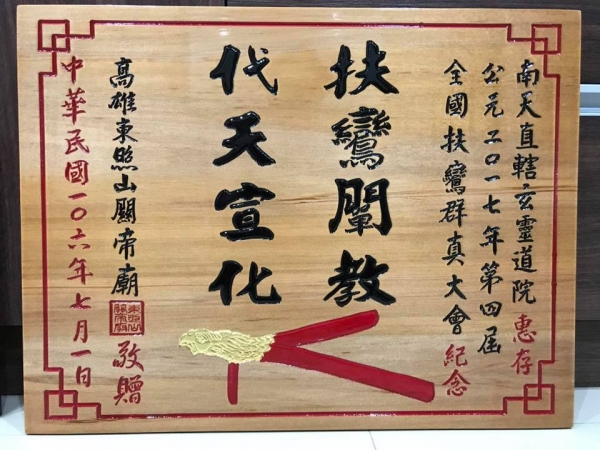 南天直轄·玄靈道院惠存
公元二０一七年第四屆
全國扶鸞群真大會紀念
扶鸞闡教
代天宣化
高雄東照山關帝廟敬贈
中華民國一０六年七月一日